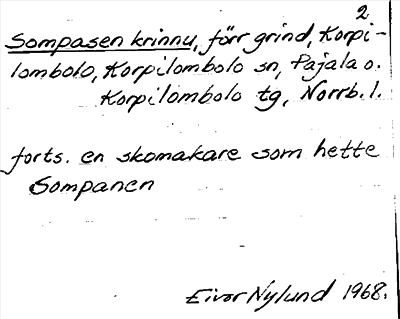 2.
Sompasen krinnu, förr grind, Korpi-
lombolo, Korpilombolo sn, Pajala o.
Korpilombolo tg, Norrb. l.
forts. en skomakare som hette
Sompanen
Eivor Nylund 1968.